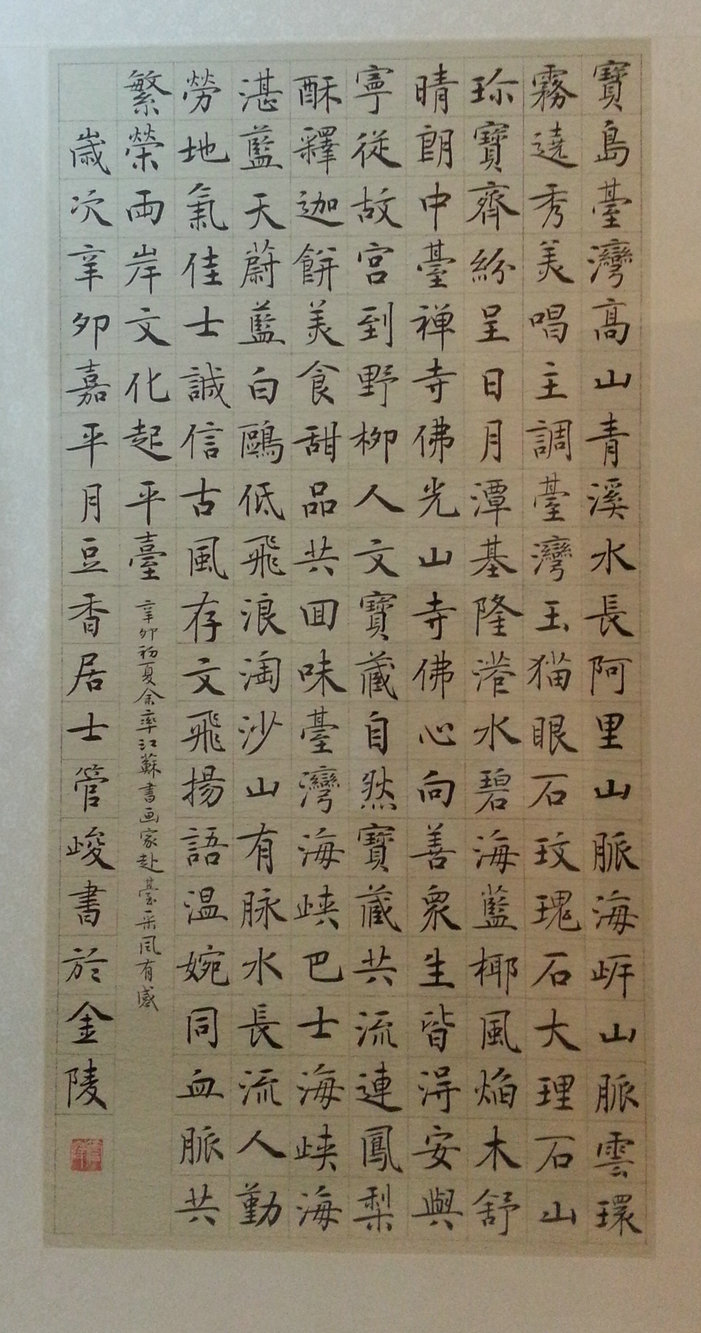 寶島臺灣高山青溪水長阿里山脈海岸山脈雲環
霧遶秀美唱主調臺灣玉猫眼石玟瑰石大理石山
珎寶齊紛呈日月潭基隆港水碧海藍椰風焔木舒
晴朗中臺禅寺佛光山寺佛心向善衆生皆淂安與
寧從故宮到野柳人文寶藏自然寶藏共流連鳳梨
酥釋迦餅美食甜品共回味臺灣海峽巴士海峽海
湛藍天蔚藍白鷗低飛浪淘沙山有脉水長流人勤
勞地氣佳士誠信古風存文飛揚語温婉同血脈共
繁榮兩岸文化起平臺
辛卯初夏余率江蘇書画家赴臺采風有感
歲次辛卯嘉平月豆香居士管峻書於金陵